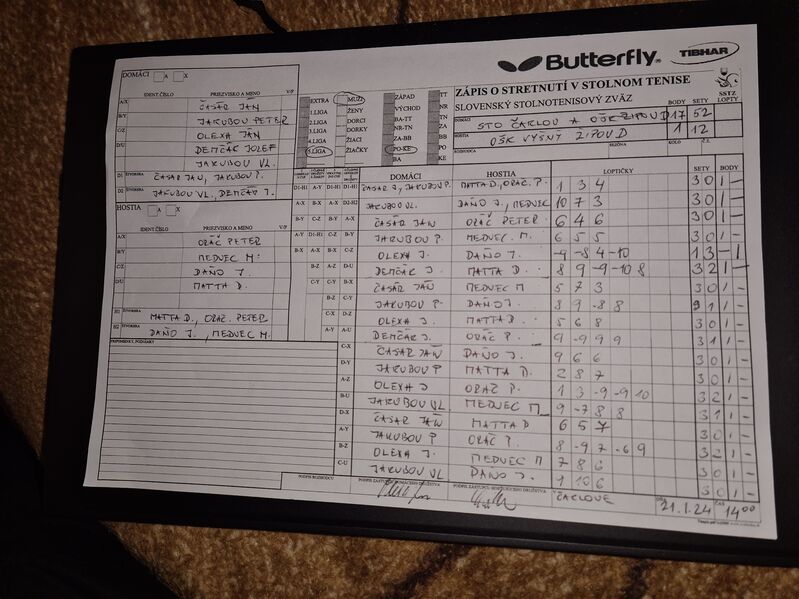 Butterfly TIBHAR
ZÁPIS O STRETNUTÍ V STOLNOM TENISE
SLOVENSKÝ STOLNOTENISOVÝ ZVÄZ
SSTZ
BODY SETY LOPTY
DOMÁCI STO ČAKLOV A OŠK ZIPOV D 17 52
HOSTIA OŠK VYŠNÝ ŽIPOV D 1 12
ROZHODCA SEZÓNA KOLO Č.Z.
EXTRA MUŽI ZÁPAD TT
1.LIGA ŽENY VÝCHOD NR
2.LIGA DORCI BA-TT TN
3.LIGA DORKY NR-TN ZA
4.LIGA ŽIACI ZA-BB BB
5.LIGA ŽIAČKY PO-KE PO
BA KE
DOMÁCI A X
IDENT ČÍSLO PRIEZVISKO A MENO V/P
A/X ČASÁR JÁN
B/Y JAKUBOV PETER
C/Z OLEXA JÁN
D/U DEMČÁK JOZEF
JAKUBOV VL.
D1 ČASÁR JÁN, JAKUBOV P.
D2 JAKUBOV VL, DEMČÁK J.
HOSTIA A X
IDENT ČÍSLO PRIEZVISKO A MENO V/P
A/X ORÁČ PETER
B/Y MEDVEC M.
C/Z DAŇO J.
D/U MATTA D.
ŠTVORHRA MATTA D., ORÁČ PETER
ŠTVORHRA DAŇO J., MEDVEC M.
PRIPOMIENKY, PODNÁMKY
DOMÁCI HOSTIA LOPTIČKY SETY BODY
D1-H1 ČASÁR J., JAKUBOV P. MATTA D., ORÁČ P. 1 3 4 3 0 1 -
D2-H2 JAKUBOV VL. DAŇO J., MEDVEC M. 10 7 3 3 0 1 -
A-X ČASÁR JÁN ORÁČ PETER 6 4 6 3 0 1 -
B-Y JAKUBOV P. MEDVEC M. 6 5 5 3 0 1 -
C-Z OLEXA J. DAŇO J. -9 -8 4 -10 1 3 - 1
D-U DEMČÁK J. MATTA D. 8 9 -9 -10 8 3 2 1 -
ČASÁR JÁN MEDVEC M 5 7 3 3 0 1 -
JAKUBOV P. DAŇO J. 8 9 -8 8 3 1 1 -
OLEXA J. MATTA D. 5 6 8 3 0 1 -
DEMČÁK J. ORÁČ P. 9 -9 9 9 3 1 1 -
C-X ČASÁR JÁN DAŇO J. 9 6 6 3 0 1 -
D-Y JAKUBOV P MATTA D. 2 8 7 3 0 1 -
A-Z OLEXA J ORÁČ P. 1 3 -9 -9 10 3 2 1 -
B-U JAKUBOV VL. MEDVEC M 9 -7 8 8 3 1 1 -
D-X ČASÁR JÁN MATTA D 6 5 7 3 0 1 -
A-Y JAKUBOV P. ORÁČ P. 8 -9 7 -6 9 3 2 1 -
B-Z OLEXA J. MEDVEC M 7 8 6 3 0 1 -
C-U JAKUBOV VL DAŇO J. 1 10 6 3 0 1 -
PODPIS ROZHODCU PODPIS ZÁSTUPCU DOMÁCEHO DRUŽSTVA PODPIS ZÁSTUPCU HOSŤUJÚCEHO DRUŽSTVA V ČAKLOVE DŇA 21.1.24 ČAS 14 00